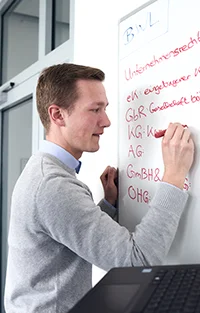 BWL
Unternehmensrechtf
eK = eingetragener K
GbR = Gesellschaft bü
KG = K
AG =
GmbH &
OHG